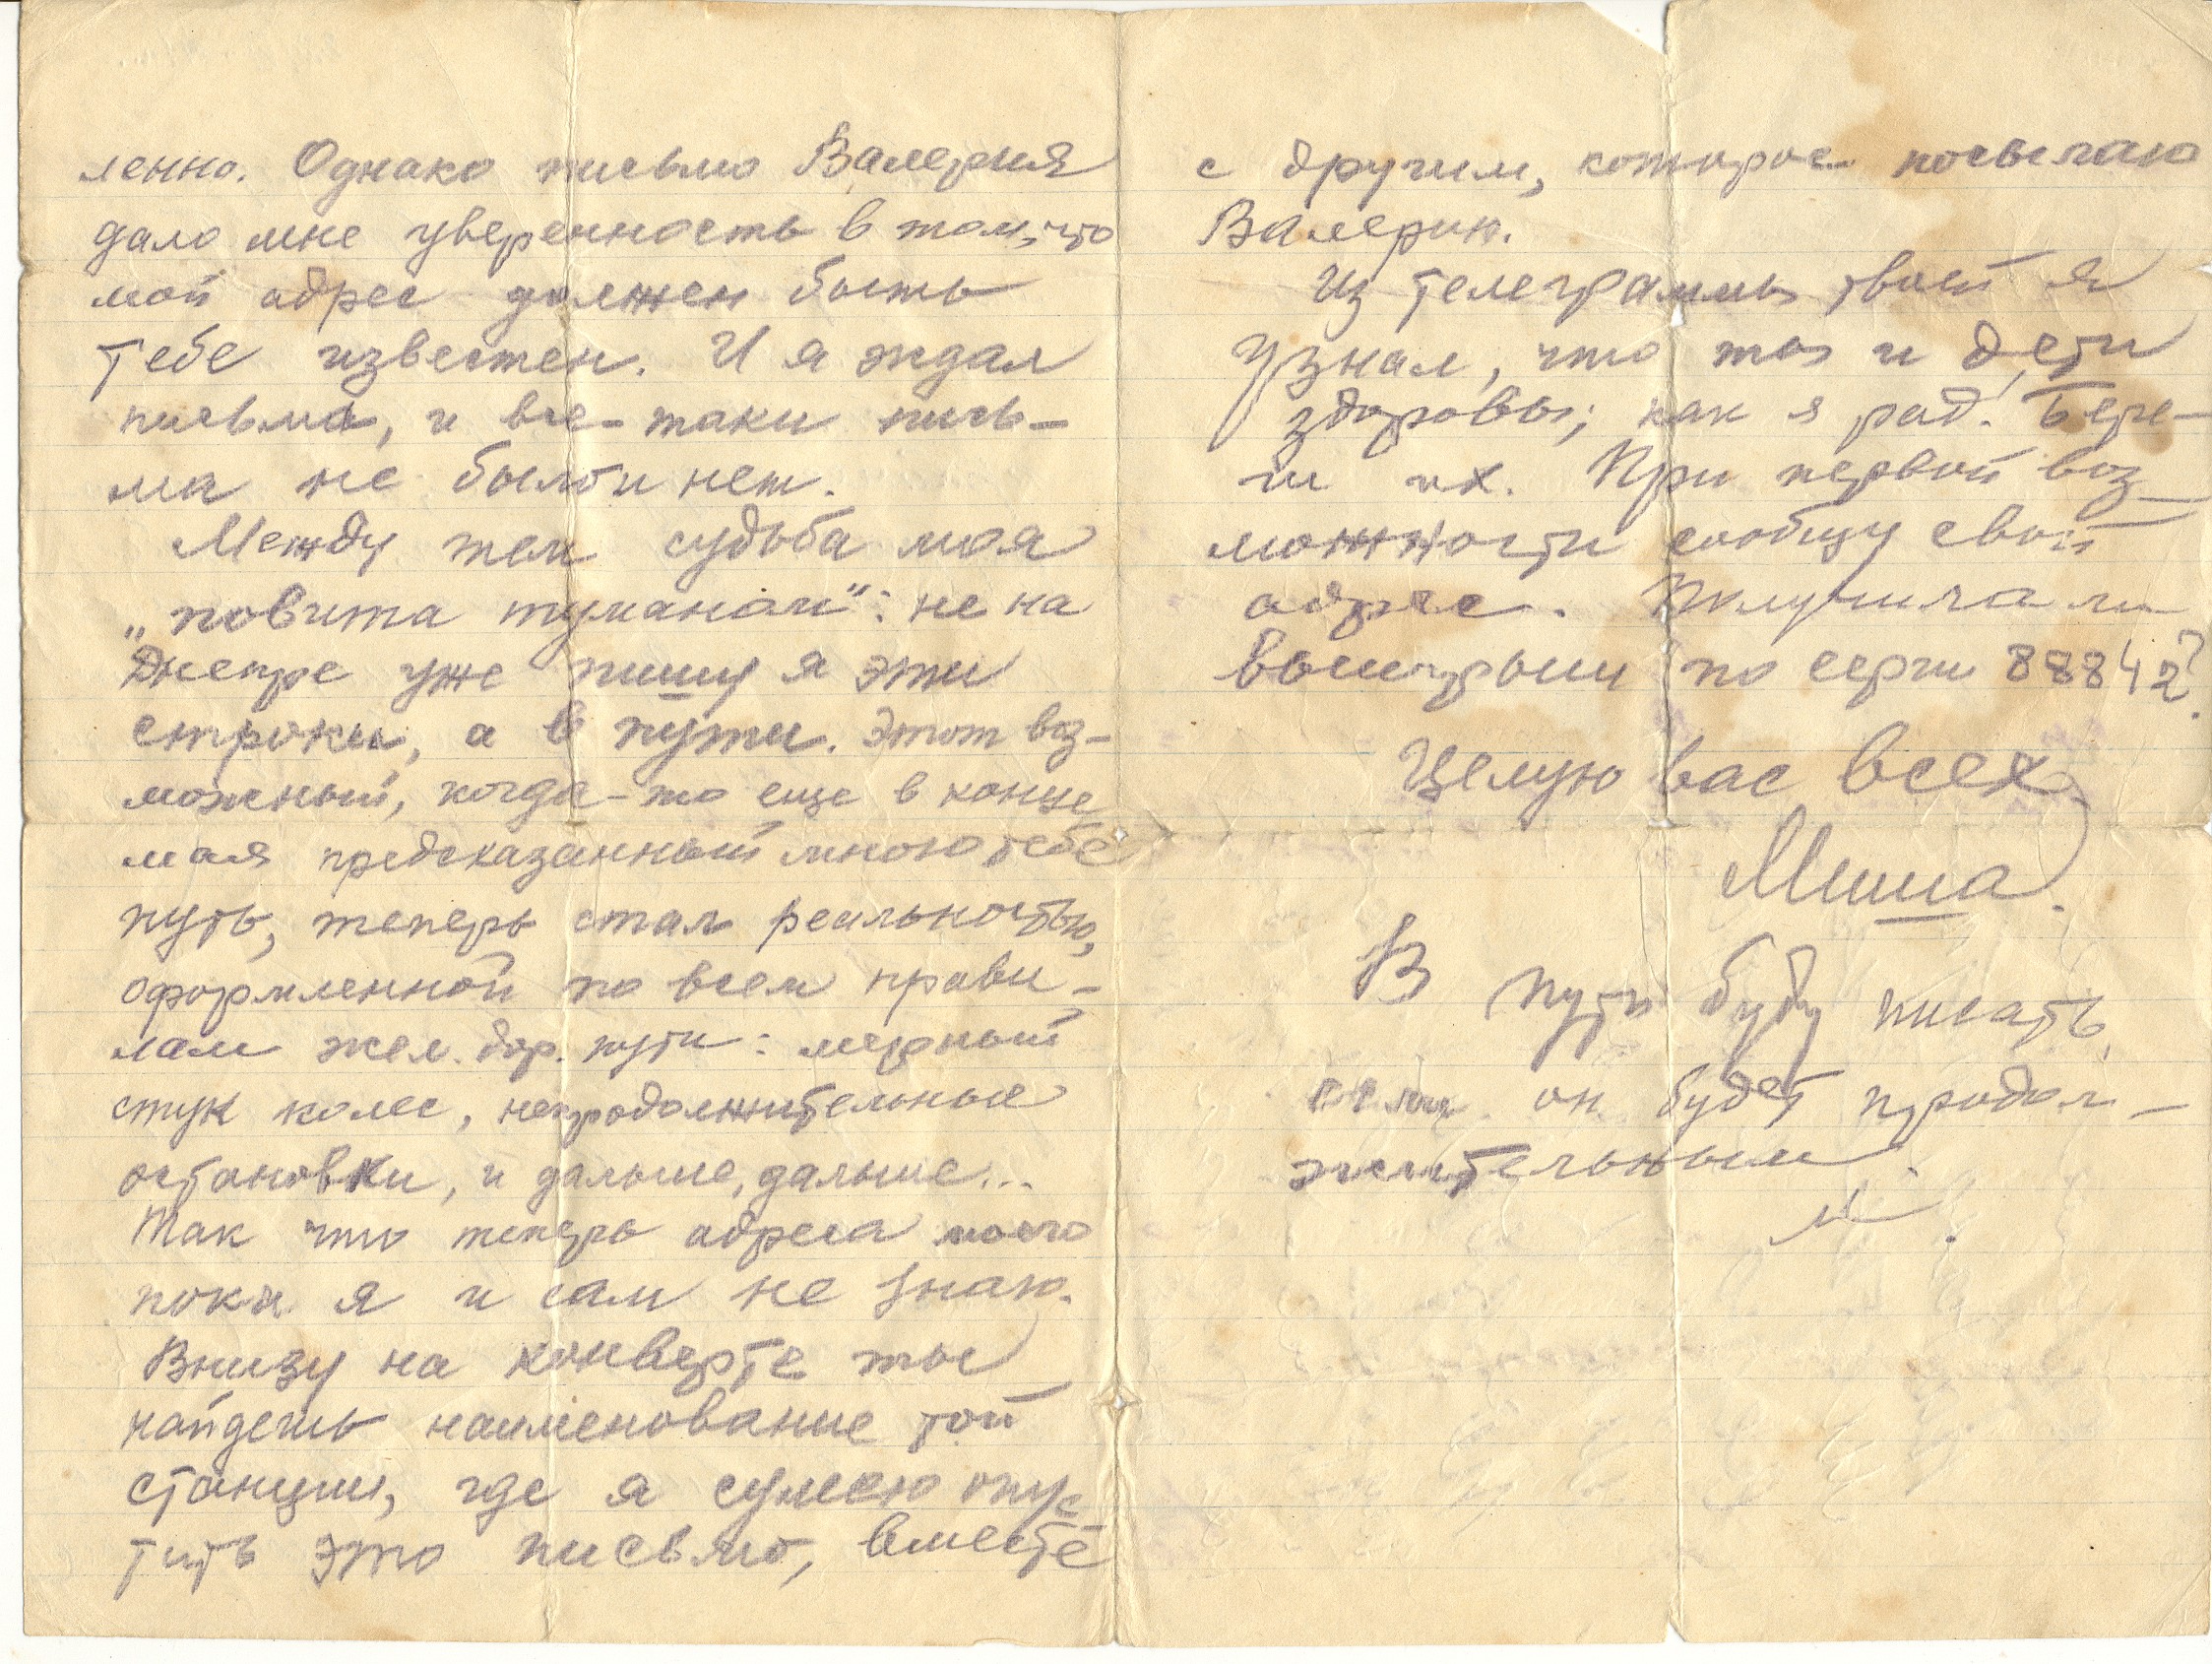 ленно. Однако письмо Валерия
дало мне уверенность в том, что
мой адрес должен быть
тебе известен. И я ждал
письма, и все-таки пись-
ма не было и нет.
Между тем судьба моя
„повита туманом“: не на
Днепре уже пишу я эти
строки, а в пути. Этот воз-
можный, когда-то еще в конце
мая предсказанный мною тебе
путь, теперь стал реальностью,
оформленной по всем прави-
лам жел. дор. пути: мерный
стук колес, непродолжительные
остановки, и дальше, дальше...
Так что теперь адреса моего
пока я и сам не знаю.
Внизу на конверте ты
найдешь наименование той
станции, где я сумею опус
тить это письмо, вместе
с другим, которое посылаю
Валерию.
Из телеграммы твоей я
узнал, что ты и дети
здоровы; как я рад! Бере-
ги их. При первой воз-
можности сообщу свой
адрес. Получила ли
выигрыш по серии 88842?
Целую вас всех.
Миша.
В пути буду писать,
если он будет продол-
жительным.
М.